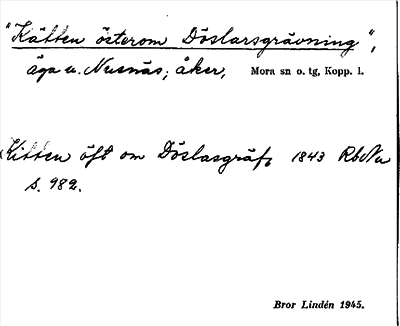 "Kätten österom Döslarsgrävning",
äga u. Nusnäs; åker, Mora sn o. tg, Kopp. l.
Kitten öft om Döslasgräf, 1843 RbNu
s. 982.
Bror Lindén 1945.